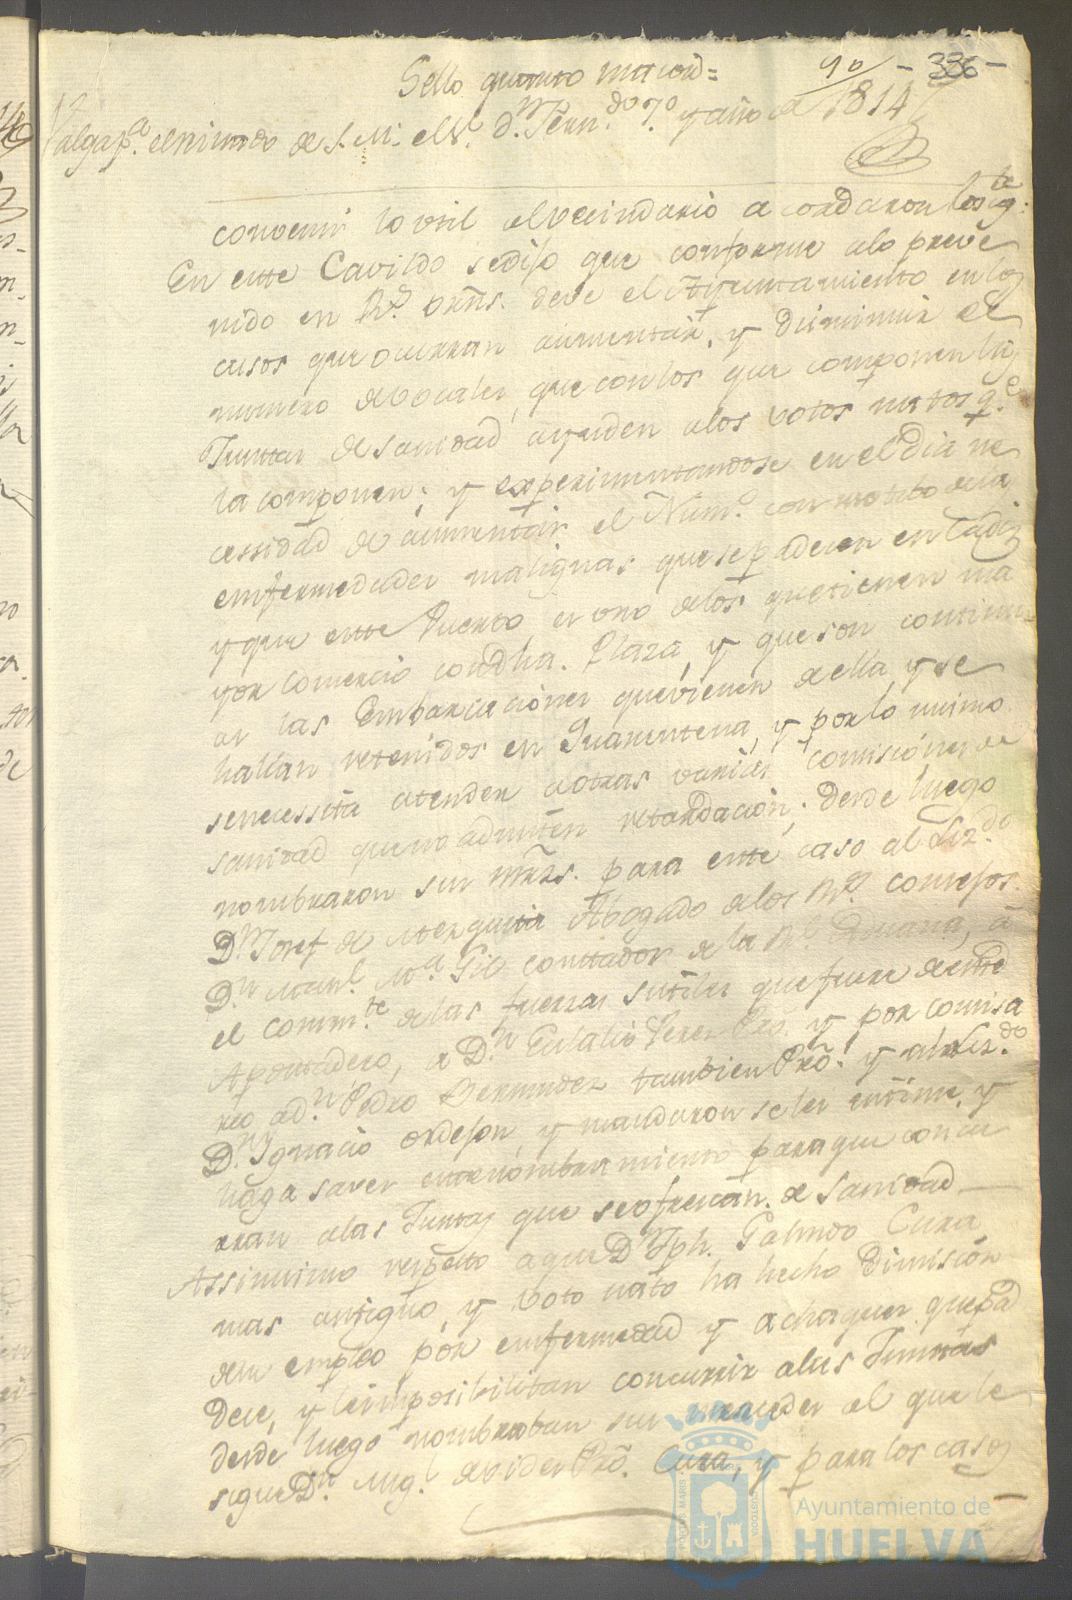 90 - 336 -
Sello quarto mrs con.d=
Valga p.a el reinado de S. M. el S.r d.n Fern.do 7.o y año de 1814
convenir lo util al vecindario acordaron lo sig.te
En este Cavildo se dijo que conforme alo preve
nido en R.s Orñs. deve el Ayuntamiento en los
casos que ocurran aumentar, y disminuir el
numero de vocales, que con los que componen las
Juntas de sanidad ayuden alos votos natos q.e
la componen; y experimentandose en el Dia ne
cessidad de aumentar el Num.o con motibo de las
enfermedades malignas que se padecen en Cadiz
y que este Puerto es uno delos que tienen ma
yor comercio con dha. Plaza, y que son continu-
as las Embarcaciones que vienen de ella y se
hallan retenidas en Quarentena, y por lo mismo
se necessita atender a otras varias comisiones de
sanidad que no admiten retardacion; desde luego
nombraron sus mrzs. para este caso al Liz.do
D.n Josef de Mezquita Abogado delos R.s consejos.
D.n Man.l M.a Gil contador de la R.l Aduana, á
el Comm.te de las fuerzas sutiles que fuere de este
Apostadero, a D.n Eulalio Perez Pro. y por comisa
rio a d.n Pedro Bermudez tambien Pro. y al Liz.do
D.n Ygnacio Ordejon, y mandaron seles intime, y
haga saver este nombramiento para que concu
rran alas Juntas que se ofrezcan de Sanidad
Assimismo respecto a que D.n Jph. Galindo Cura
mas antiguo, y voto nato ha hecho Dimision
de su empleo por enfermedad y achaques que pad
dece, y le imposibilitan concurrir alas Juntas
desde luego nombraban sus mercedes al que le
sigue D.n Mig.l de Vides Pro. Cura, y para los casos
PORTUS MARIS CUSTODIA
Ayuntamiento de
HUELVA